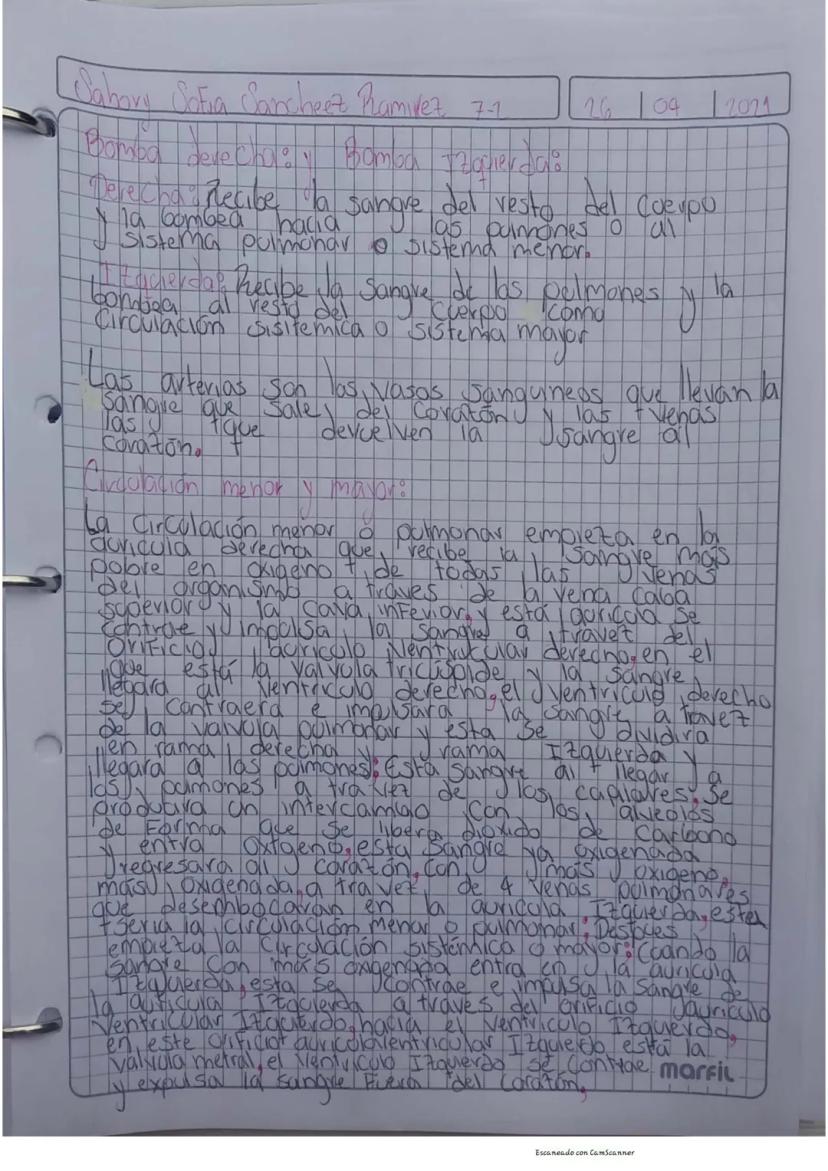 Sahory Sofia Sancheez Ramirez 7-1 26 | 04 | 2021
Bomba derecha: y Bomba Izquierda:
Derecha: Recibe la sangre del resto del cuerpo
y la bombea hacia las pumones o al
sistema pulmonar o sistema menor.
Izquierda: Recibe la sangre de los pulmones y la
bombea al resto del cuerpo como
circulación sisitemica o sistema mayor
Las arterias son los vasos sanguineos que llevan la
sangre que sale del corazón y las venas
las que devuelven la sangre al
corazón.
Circulación menor y mayor:
La circulación menor o pulmonar empieza en la
auricula derecha que recibe la sangre más
pobre en oxigeno de todas las venas
del organismo a traves de la vena caba
superior y la cava inferior, y esta auricula se
contrae y impulsa la sangre a travez del
orificio auriculo ventricular derecho, en el
que está la valvula tricuspide y la sangre
llegara al ventriculo derecho, el ventriculo derecho
se contraera e impulsara la sangre a travez
de la valvula pulmonar y esta se dividira
en rama derecha y rama Izquierda y
llegara a los pulmones: Esta sangre al llegar a
los pulmones a travez de los capilares, se
producira un intercambio con los alveolos
de forma que se libera dioxido de carbono
y entra oxigeno, esta sangre ya oxigenada
regresara al corazón, con más oxigeno,
más oxigenada, a travez de 4 venas pulmonares
que desembocaran en la auricula Izquierda, esta
seria la circulación menor o pulmonar, Despues
empieza la circulación sistémica o mayor: Cuando la
sangre con más oxigenada entra en la auricula
Izquierda, esta se contrae e impulsa la sangre de
la auricula Izquierda a traves del orificio auriculo
ventricular Izquierdo, hacia el ventriculo Izquierdo,
en este orificio auriculoventricular Izquierdo está la
valvula metral, el ventriculo Izquierdo se contrae
y expulsa la sangre fuera del corazón,
marfil
Escaneado con CamScanner